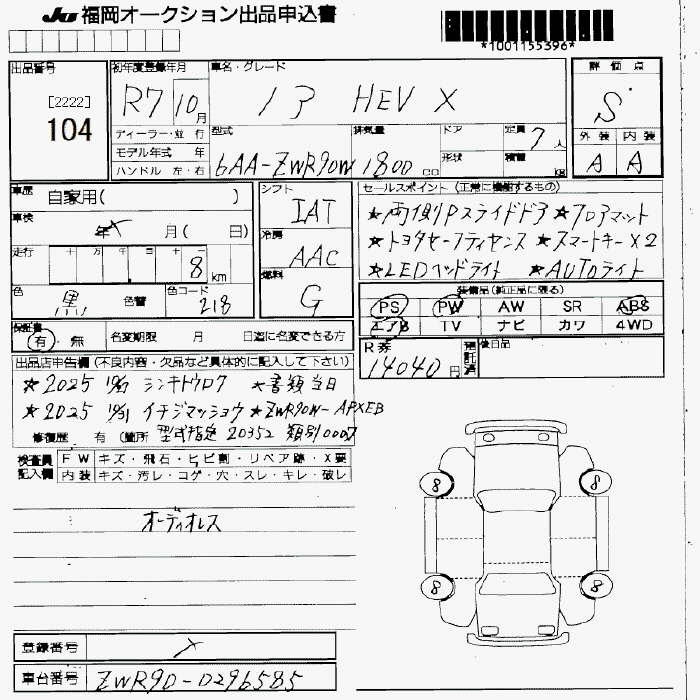 JU 福岡オークション出品申込書
*1001155396*
出品番号
[2222]
104
初年度登録年月
R7 10月
車名・グレード
ノア HEV X
評価点
S
外装 内装
A A
ディーラー・並行
モデル年式 年
ハンドル 左・右
型式
6AA-ZWR90W
排気量
1800 cc
ドア
形状
定員
7人
積載
kg
車歴 自家用( )
車検 年 月( 日)
走行 十 万 千 百 十 一
8 km
色 黒 色替
色コード
218
シフト
IAT
冷房
AAC
燃料
G
セールスポイント (正常に機能するもの)
★両側Pスライドドア ★フロアマット
★トヨタセーフティセンス ★スマートキーX2
★LEDヘッドライト ★AUTOライト
装備品(純正品に限る)
PS PW AW SR ABS
エアB TV ナビ カワ 4WD
保証書
有・無
名変期限 月 日迄に名変できる方
R券
14040円
預託済
後日品
出品店申告欄(不良内容・欠品など具体的に記入して下さい)
★2025 10/21 シンキトウロク ★書類当日
★2025 10/31 イチジマッショウ ★ZWR90W-APXEB
修復歴 有(箇所 型式指定 20352 類別0007
検査員記入欄
FW キズ・飛石・ヒビ割・リペア跡・X要
内装 キズ・汚レ・コゲ・穴・スレ・キレ・破レ
オーディオレス
8 8
8 8
登録番号 X
車台番号 ZWR90-0296585